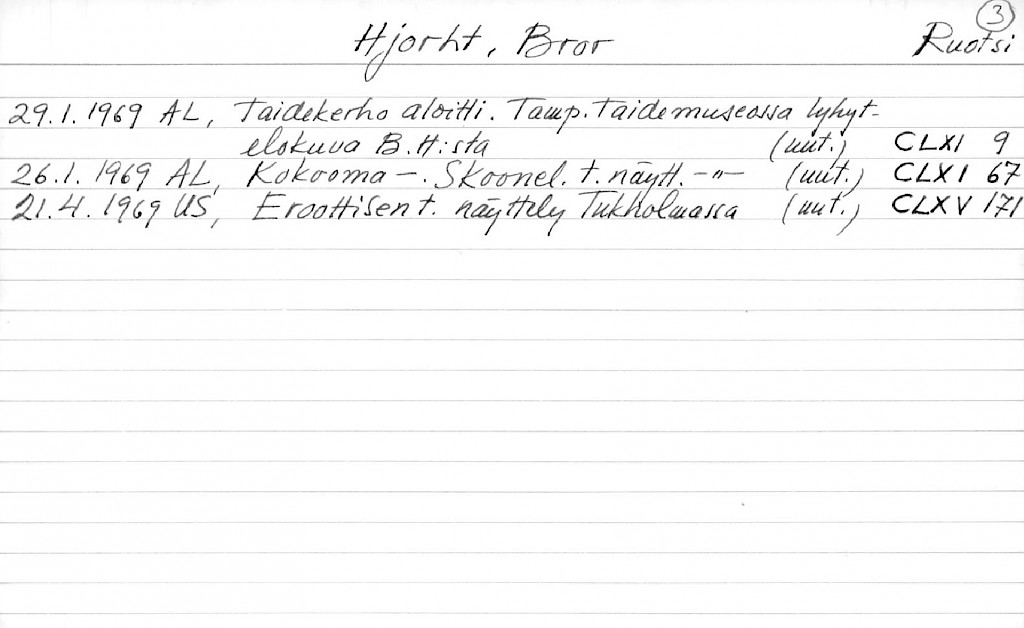 3
Hjorht, Bror Ruotsi
29.1.1969 AL, Taidekerho aloitti. Tamp. Taidemuseossa lyhyt-
elokuva B.H:sta (uut.) CLXI 9
26.1.1969 AL, Kokooma –. Skoonel. t. näytt. –"– (uut.) CLXI 67
21.4.1969 US, Eroottisen t. näyttely Tukholmassa (uut.) CLXV 171